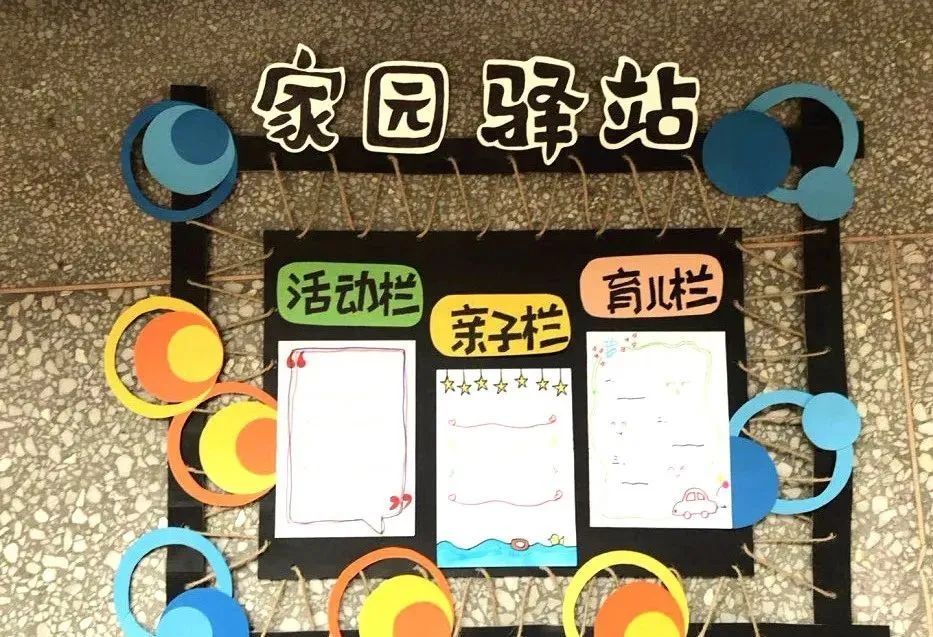 家园驿站
活动栏
亲子栏
育儿栏
一、
二、
三、